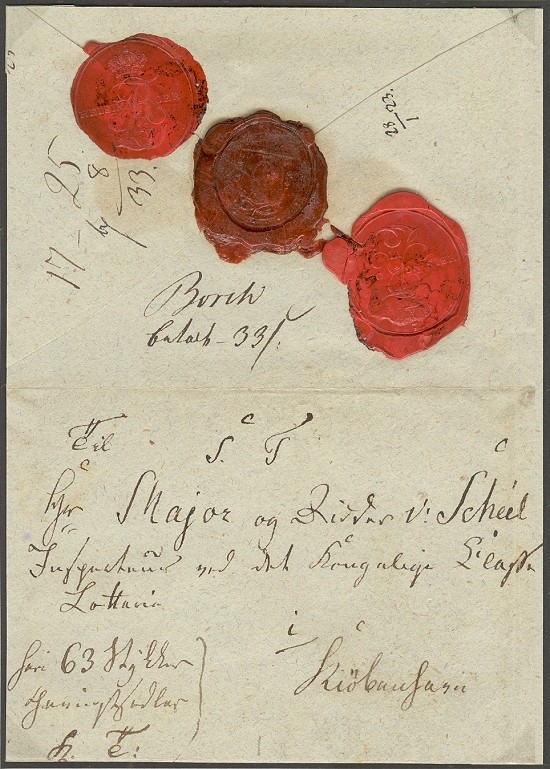 17 - 25
8.
33.
28/1 23.
Borch
betalt - 33/.
Til
S. T
Hr Major og Ridder v: Scheel
Inspecteur ved det Kongelige Classe
Lotterie
i
Kiöbenhavn
heri 63 Stykker
H. T: